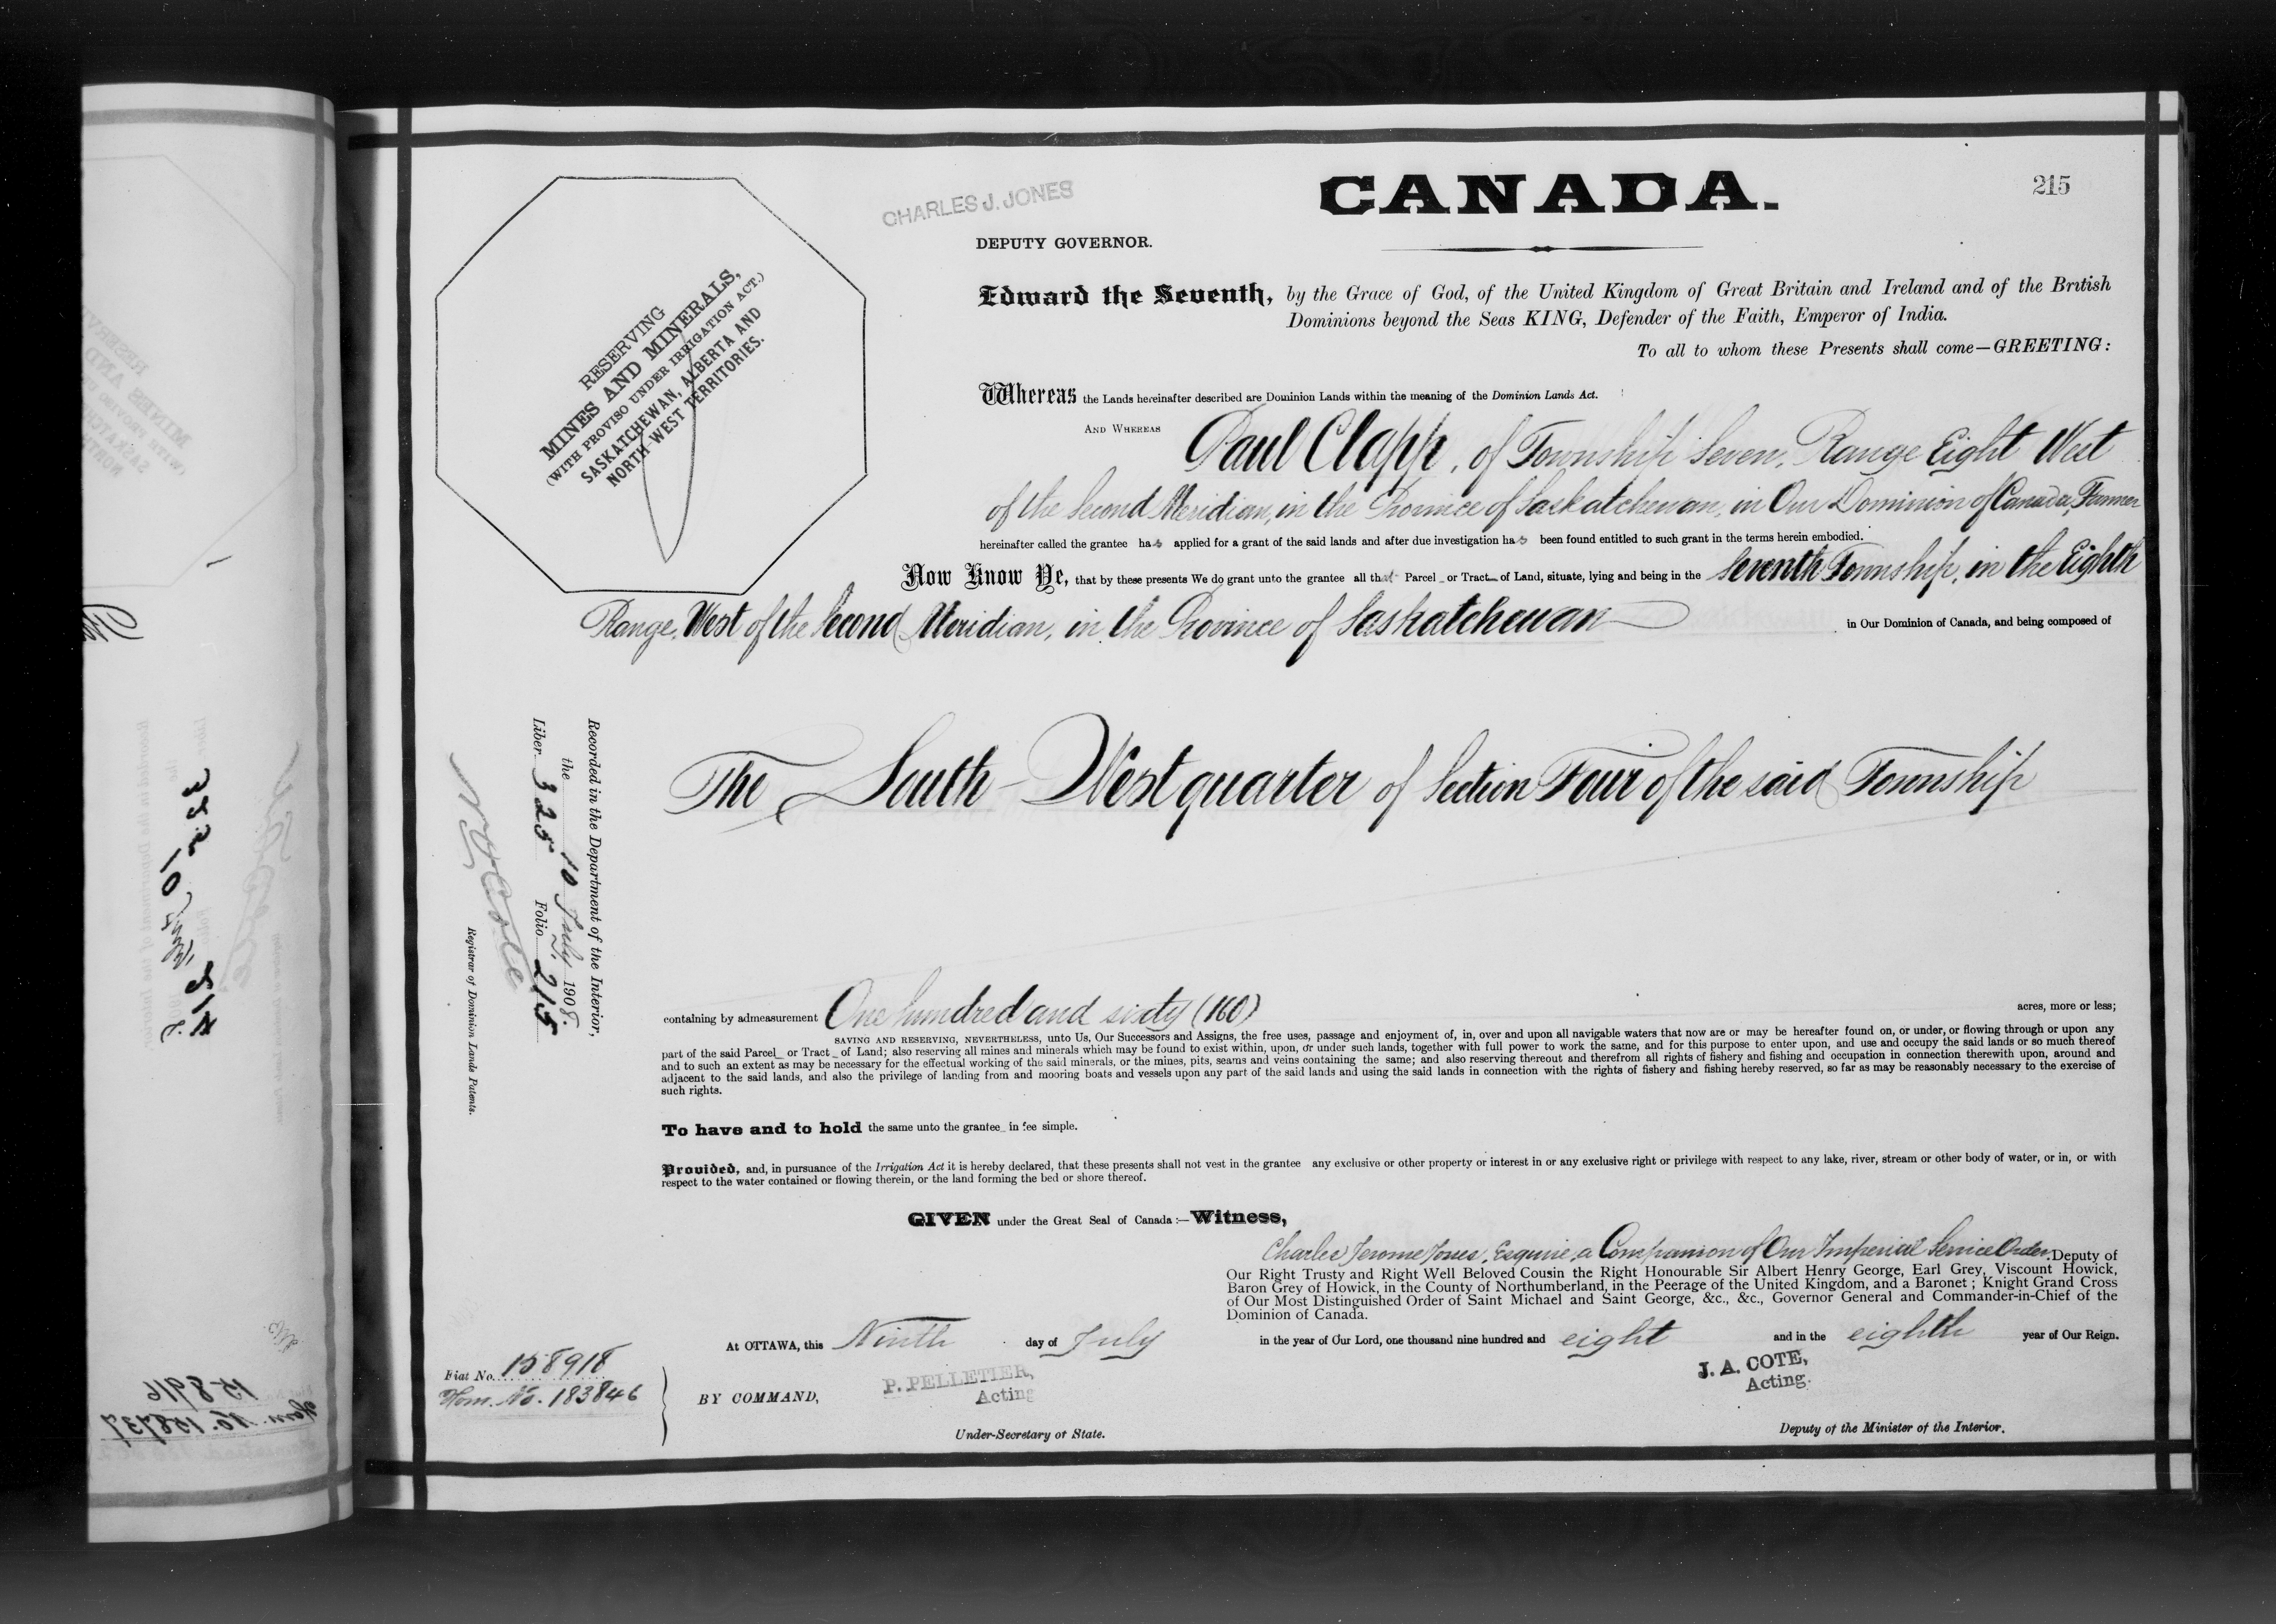 CANADA.
215
CHARLES J. JONES
DEPUTY GOVERNOR.
RESERVING
MINES AND MINERALS,
(WITH PROVISO UNDER IRRIGATION ACT.)
SASKATCHEWAN, ALBERTA AND
NORTH-WEST TERRITORIES.
Edward the Seventh, by the Grace of God, of the United Kingdom of Great Britain and Ireland and of the British
Dominions beyond the Seas KING, Defender of the Faith, Emperor of India.
To all to whom these Presents shall come—GREETING:
Whereas the Lands hereinafter described are Dominion Lands within the meaning of the Dominion Lands Act.
AND WHEREAS Paul Clapp, of Township Seven, Range Eight West
of the Second Meridian, in the Province of Saskatchewan, in Our Dominion of Canada, Farmer
hereinafter called the grantee has applied for a grant of the said lands and after due investigation has been found entitled to such grant in the terms herein embodied.
Now Know Ye, that by these presents We do grant unto the grantee all that Parcel or Tract of Land, situate, lying and being in the Seventh Township, in the Eighth
Range, West of the Second Meridian, in the Province of Saskatchewan in Our Dominion of Canada, and being composed of
The South-West quarter of Section Four of the said Township
Recorded in the Department of the Interior,
the 10 July 1908.
Liber 325 Folio 215
N. O. Cote
Registrar of Dominion Lands Patents.
containing by admeasurement One hundred and sixty (160) acres, more or less;
SAVING AND RESERVING, NEVERTHELESS, unto Us, Our Successors and Assigns, the free uses, passage and enjoyment of, in, over and upon all navigable waters that now are or may be hereafter found on, or under, or flowing through or upon any
part of the said Parcel or Tract of Land; also reserving all mines and minerals which may be found to exist within, upon, or under such lands, together with full power to work the same, and for this purpose to enter upon, and use and occupy the said lands or so much thereof
and to such an extent as may be necessary for the effectual working of the said minerals, or the mines, pits, seams and veins containing the same; and also reserving thereout and therefrom all rights of fishery and fishing and occupation in connection therewith upon, around and
adjacent to the said lands, and also the privilege of landing from and mooring boats and vessels upon any part of the said lands and using the said lands in connection with the rights of fishery and fishing hereby reserved, so far as may be reasonably necessary to the exercise of
such rights.
To have and to hold the same unto the grantee in fee simple.
Provided, and, in pursuance of the Irrigation Act it is hereby declared, that these presents shall not vest in the grantee any exclusive or other property or interest in or any exclusive right or privilege with respect to any lake, river, stream or other body of water, or in, or with
respect to the water contained or flowing therein, or the land forming the bed or shore thereof.
GIVEN under the Great Seal of Canada:—Witness,
Charles Jerome Jones, Esquire, a Companion of Our Imperial Service Order, Deputy of
Our Right Trusty and Right Well Beloved Cousin the Right Honourable Sir Albert Henry George, Earl Grey, Viscount Howick,
Baron Grey of Howick, in the County of Northumberland, in the Peerage of the United Kingdom, and a Baronet; Knight Grand Cross
of Our Most Distinguished Order of Saint Michael and Saint George, &c., &c., Governor General and Commander-in-Chief of the
Dominion of Canada.
At OTTAWA, this Ninth day of July in the year of Our Lord, one thousand nine hundred and eight and in the eighth year of Our Reign.
Fiat No. 158918
Hom. No. 183846
BY COMMAND,
P. PELLETIER,
Acting
Under-Secretary of State.
J. A. COTE,
Acting.
Deputy of the Minister of the Interior.